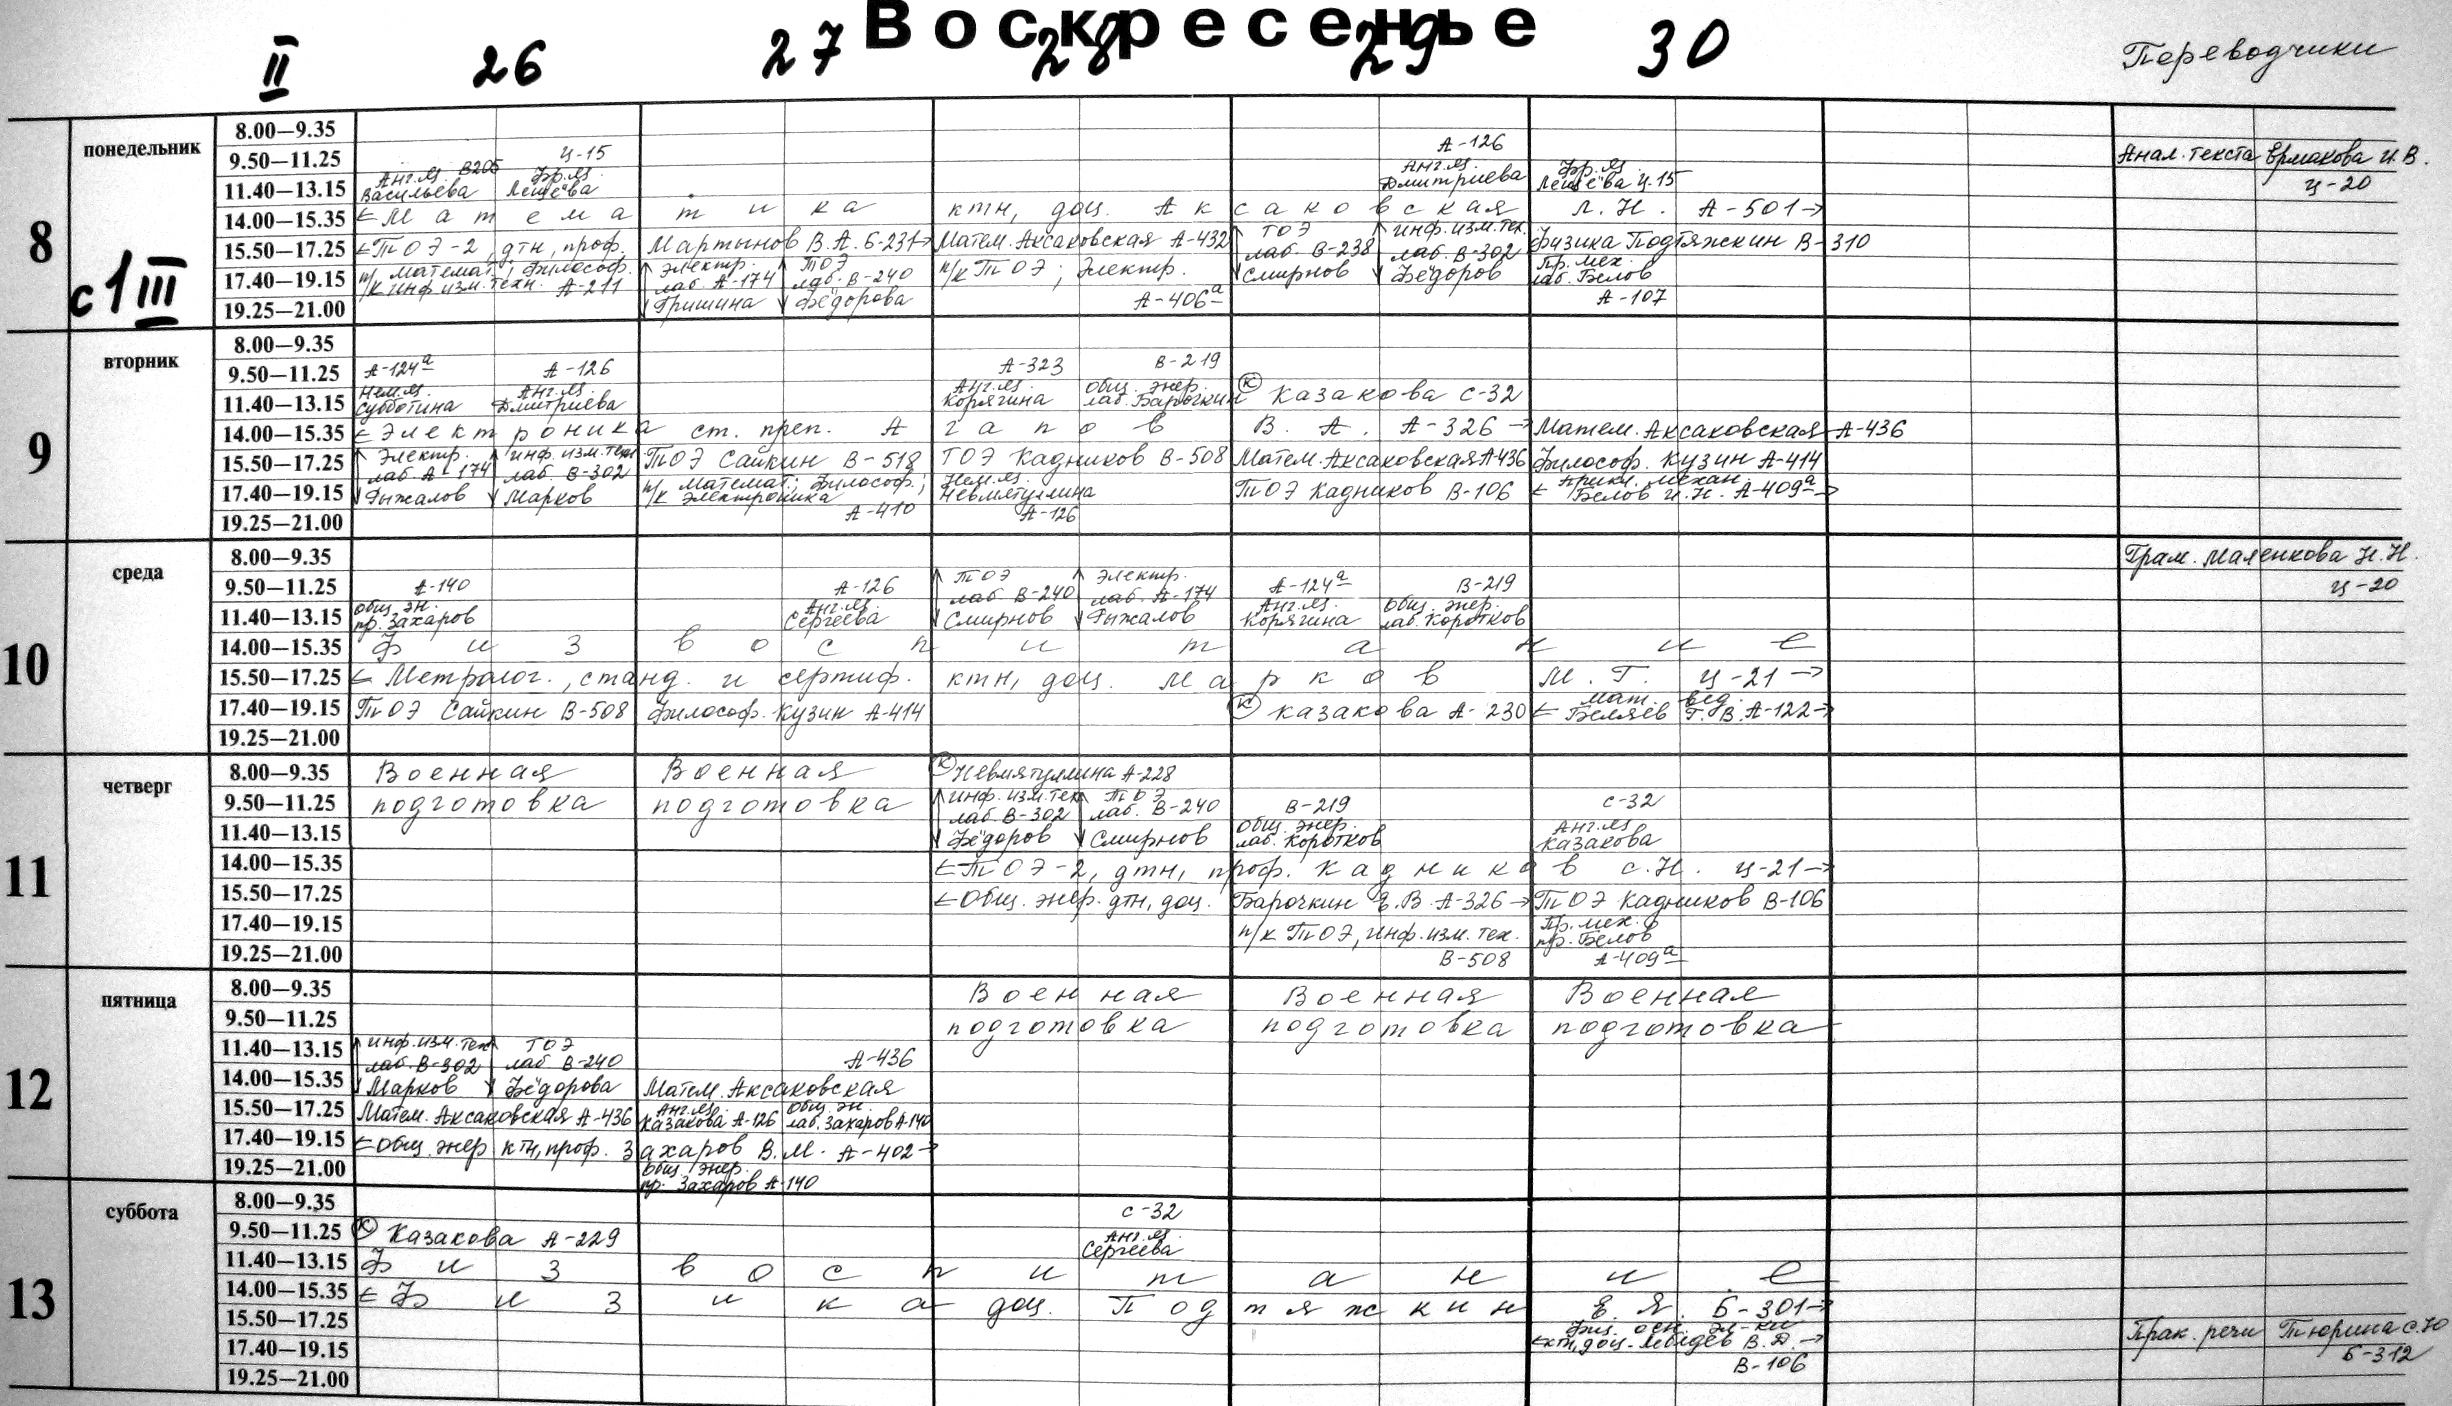 Воскресенье
II 26 27 28 29 30 Переводчики
8 с 1 III
понедельник
8.00—9.35
9.50—11.25 Ц-15 А-126 Анал. текста Ермакова И.В.
11.40—13.15 Англ.яз. В205 Васильева Фр.яз. Лещёва Англ.яз. Дмитриева Фр.яз. Лещёва Ц-15 Ц-20
14.00—15.35 ←Математика ктн, доц. Аксаковская Л.Н. А-501→
15.50—17.25 ←ТОЭ-2, дтн, проф. Мартынов В.А. Б-231→ Матем. Аксаковская А-432 ↑ ТОЭ лаб. В-238 Смирнов ↑ инф.изм.тех. лаб. В-302 Фёдоров Физика Подтяжкин В-310
17.40—19.15 п/к математ.; философ. инф изм. техн. А-211 ↑ Электр. лаб. А-174 Гришина ↑ ТОЭ лаб. В-240 Фёдорова п/к ТОЭ; Электр. Пр. мех. лаб. Белов
19.25—21.00 А-406а А-107
9
вторник
8.00—9.35
9.50—11.25 А-124а А-126 А-323 В-219
11.40—13.15 Нем.яз. Субботина Англ.яз. Дмитриева Англ.яз. Корягина Общ. энер. лаб. Барочкин (К) Казакова С-32
14.00—15.35 ←Электроника ст. преп. Агапов В.А. А-326→ Матем. Аксаковская А-436
15.50—17.25 ↑ Электр. лаб А-174 Рыжалов ↑ инф.изм.техн лаб. В-302 Марков ТОЭ Сайкин В-518 ТОЭ Кадников В-508 Матем. Аксаковская А436 Философ. Кузин А-414
17.40—19.15 п/к Математ.; Философ.; Электроника Нем.яз. Невмятуллина ТОЭ Кадников В-106 ← Прикл. механ. Белов И.Н. А-409а→
19.25—21.00 А-410 А-126
10
среда
8.00—9.35 Грам. Маленкова Н.Н.
9.50—11.25 А-140 А-126 ↑ ТОЭ лаб. В-240 Смирнов ↑ Электр. лаб. А-174 Рыжалов А-124а В-219 Ц-20
11.40—13.15 Общ. эн. пр. Захаров Англ.яз. Сергеева Англ.яз. Корягина Общ. энер. лаб. Коротков
14.00—15.35 Физвоспитание
15.50—17.25 ←Метролог., станд. и сертиф. ктн, доц. Марков М.Г. Ц-21→
17.40—19.15 ТОЭ Сайкин В-508 Философ. Кузин А-414 (К) Казакова А-230 ← Мат. вед. Беляев Г.В. А-122→
19.25—21.00
11
четверг
8.00—9.35 Военная Военная (К) Невмятуллина А-228
9.50—11.25 подготовка подготовка ↑ инф.изм.тех лаб. В-302 Фёдоров ↑ ТОЭ лаб. В-240 Смирнов В-219 С-32
11.40—13.15 Общ. энер. лаб. Коротков Англ.яз Казакова
14.00—15.35 ←ТОЭ-2, дтн, проф. Кадников С.Н. Ц-21→
15.50—17.25 ←Общ. энер. дтн, доц. Барочкин Е.В. А-326→ ТОЭ Кадников В-106
17.40—19.15 п/к ТОЭ, Инф.изм.тех. Пр. мех. пр. Белов
19.25—21.00 В-508 А-409а
12
пятница
8.00—9.35 Военная Военная Военная
9.50—11.25 подготовка подготовка подготовка
11.40—13.15 ↑ инф.изм.тех лаб. В-302 Марков ↑ ТОЭ лаб. В-240 Фёдорова А-436
14.00—15.35 Матем. Аксаковская
15.50—17.25 Матем. Аксаковская А-436 Англ.яз. Казакова А-126 Общ. эн. лаб. Захаров А-140
17.40—19.15 ←Общ. энер ктн, проф. Захаров В.М. А-402→
19.25—21.00 Общ. энер. пр. Захаров А-140
13
суббота
8.00—9.35 С-32
9.50—11.25 (К) Казакова А-229 Англ.яз. Сергеева
11.40—13.15 Физвоспитание
14.00—15.35 ←Физика доц. Подтяжкин Е.Я. Б-301→
15.50—17.25 Физ. осн. эл-ки Прак. речи Тюрина С.Ю
17.40—19.15 ←ктн, доц. Лебедев В.Д.→ Б-312
19.25—21.00 В-106